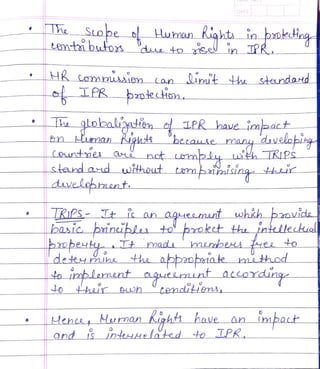 • The Scope of Human Rights in protecting
contributors due to rise in IPR.
• HR commission can limit the standard
of IPR protection.
• The globalization of IPR have impact
on Human Rights because many developing
countries are not comply with TRIPS
standard without comprimising their
development.
• TRIPS- It is an agreement which provide
basic principles to protect the intellectual
property. It made members free to
determine the appropriate method
to implement agreement according
to their own conditions.
• Hence, Human Rights have an impact
and is interrelated to IPR.